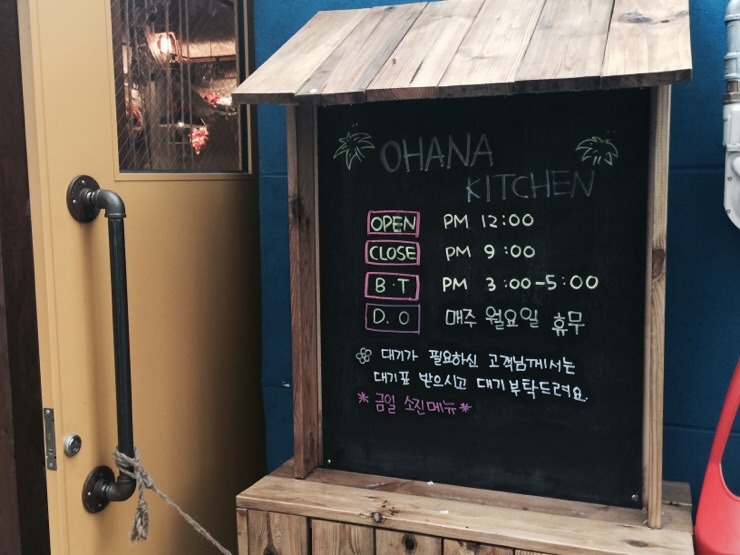 OHANA
KITCHEN
OPEN PM 12:00
CLOSE PM 9:00
B·T PM 3:00-5:00
D.O 매주 월요일 휴무
대기가 필요하신 고객님께서는
대기표 받으시고 대기부탁드려요.
*금일 소진메뉴*